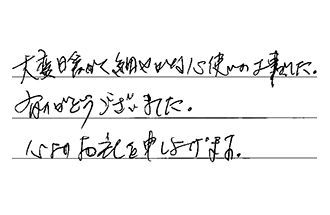 大変日当りよく細やかな心使いの工事でした。
ありがとうございました。
心よりお礼を申し上げます。